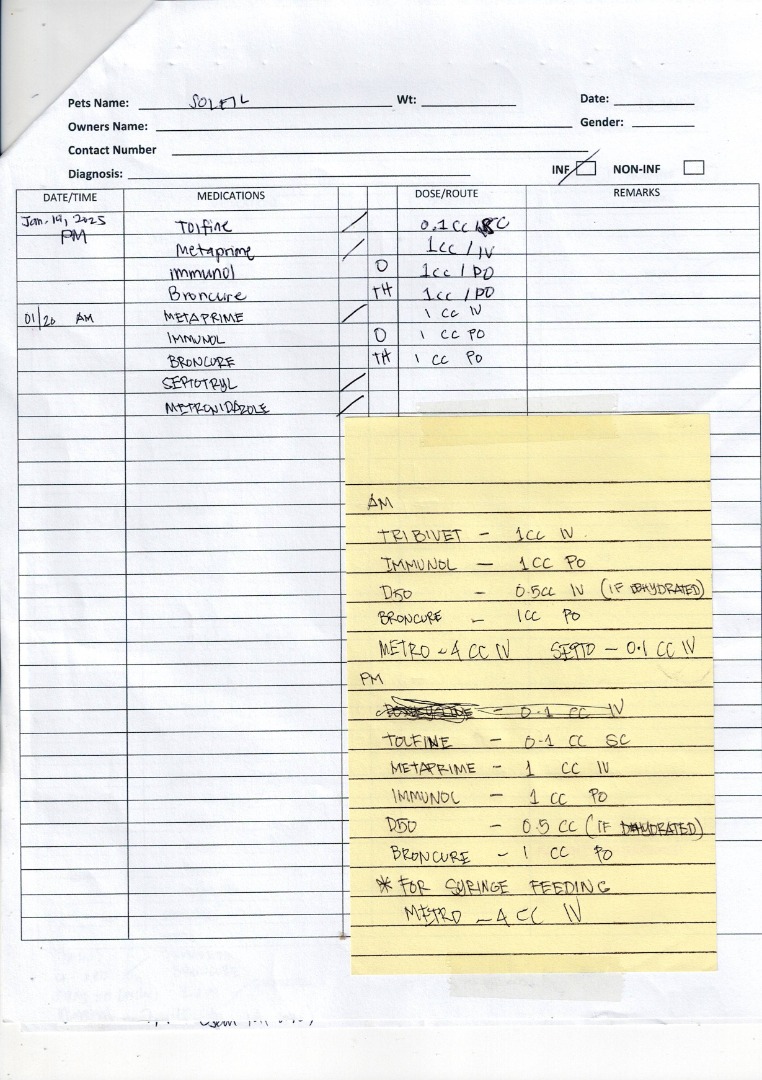 Pets Name: SOLEIL Wt: Date:
Owners Name: Gender:
Contact Number
Diagnosis: INF NON-INF
DATE/TIME MEDICATIONS DOSE/ROUTE REMARKS
Jan. 19, 2025 Tolfine / 0.1 cc / SC
PM Metaprime / 1cc / IV
immunol O 1cc / PO
Broncure TH 1cc / PO
01/20 AM METAPRIME / 1 CC IV
IMMUNOL O 1 CC PO
BRONCURE TH 1 CC PO
SEPTOTRYL /
METRONIDAZOLE /
AM
TRIBIVET - 1CC IV
IMMUNOL - 1CC PO
D50 - 0.5CC IV (IF DEHYDRATED)
BRONCURE - 1CC PO
METRO - 4 CC IV SEPTO - 0.1 CC IV
PM
- 0.1 CC IV
TOLFINE - 0.1 CC SC
METAPRIME - 1 CC IV
IMMUNOL - 1 CC PO
D50 - 0.5 CC (IF DEHYDRATED)
BRONCURE - 1 CC PO
* FOR SYRINGE FEEDING
METRO - 4 CC IV